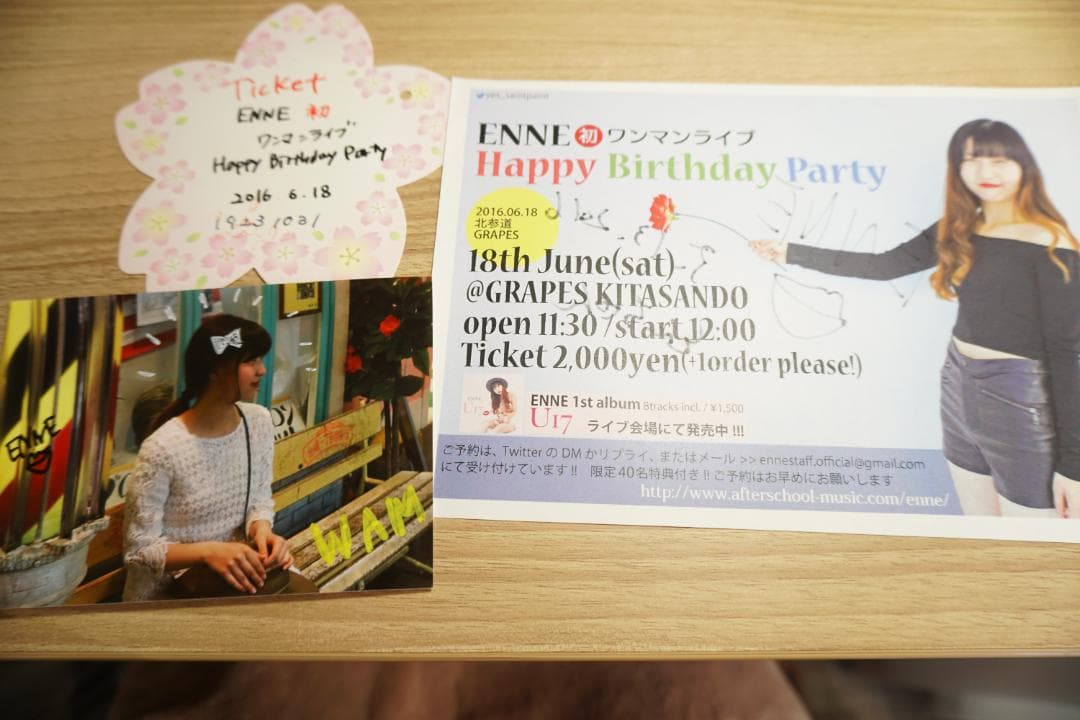 Ticket
ENNE 初
ワンマンライブ
Happy Birthday Party
2016 6.18
ENNE
WAM
ENNE 初 ワンマンライブ
Happy Birthday Party
2016.06.18
北参道
GRAPES
18th June(sat)
@GRAPES KITASANDO
open 11:30 /start 12:00
Ticket 2,000yen(+1order please!)
ENNE 1st album 8tracks incl. / ¥1,500
U17 ライブ会場にて発売中 !!!
ご予約は、Twitter の DM かリプライ、またはメール >> ennestaff.official@gmail.com
にて受け付けています !! 限定 40 名特典付き !! ご予約はお早めにお願いします
http://www.afterschool-music.com/enne/